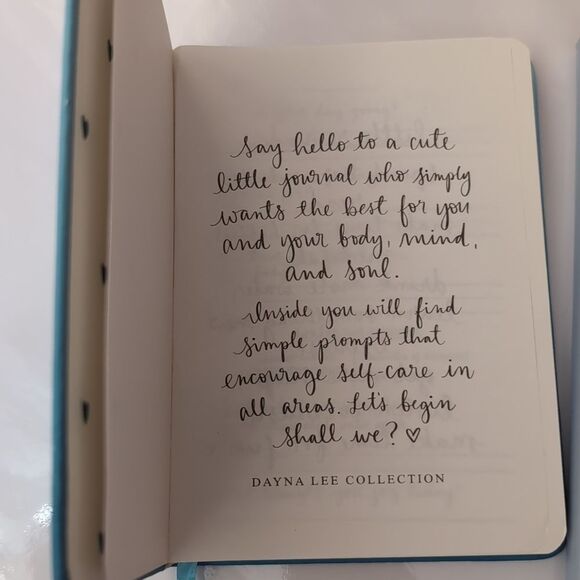 Say hello to a cute
little journal who simply
wants the best for you
and your body, mind,
and soul.
Inside you will find
simple prompts that
encourage self-care in
all areas. Let's begin
shall we? ♡
DAYNA LEE COLLECTION